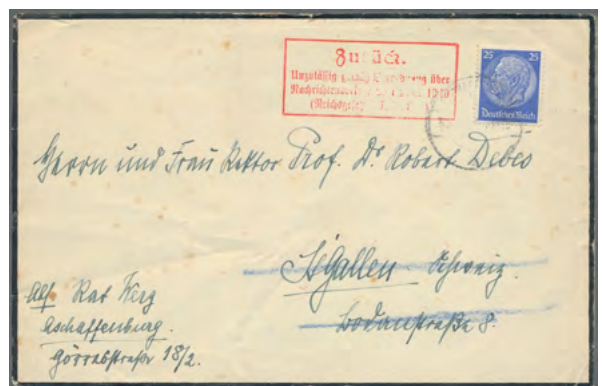 Zurück.
Unzulässig über
Nachrichtenverkehr 1940
25 25
Deutsches Reich
Herrn und Frau Rektor Prof. Dr. Robert Debes
St. Gallen Schweiz.
Bodanstraße 8.
Abs. Rat
Aschaffenburg.
Görresstraße 18/2.